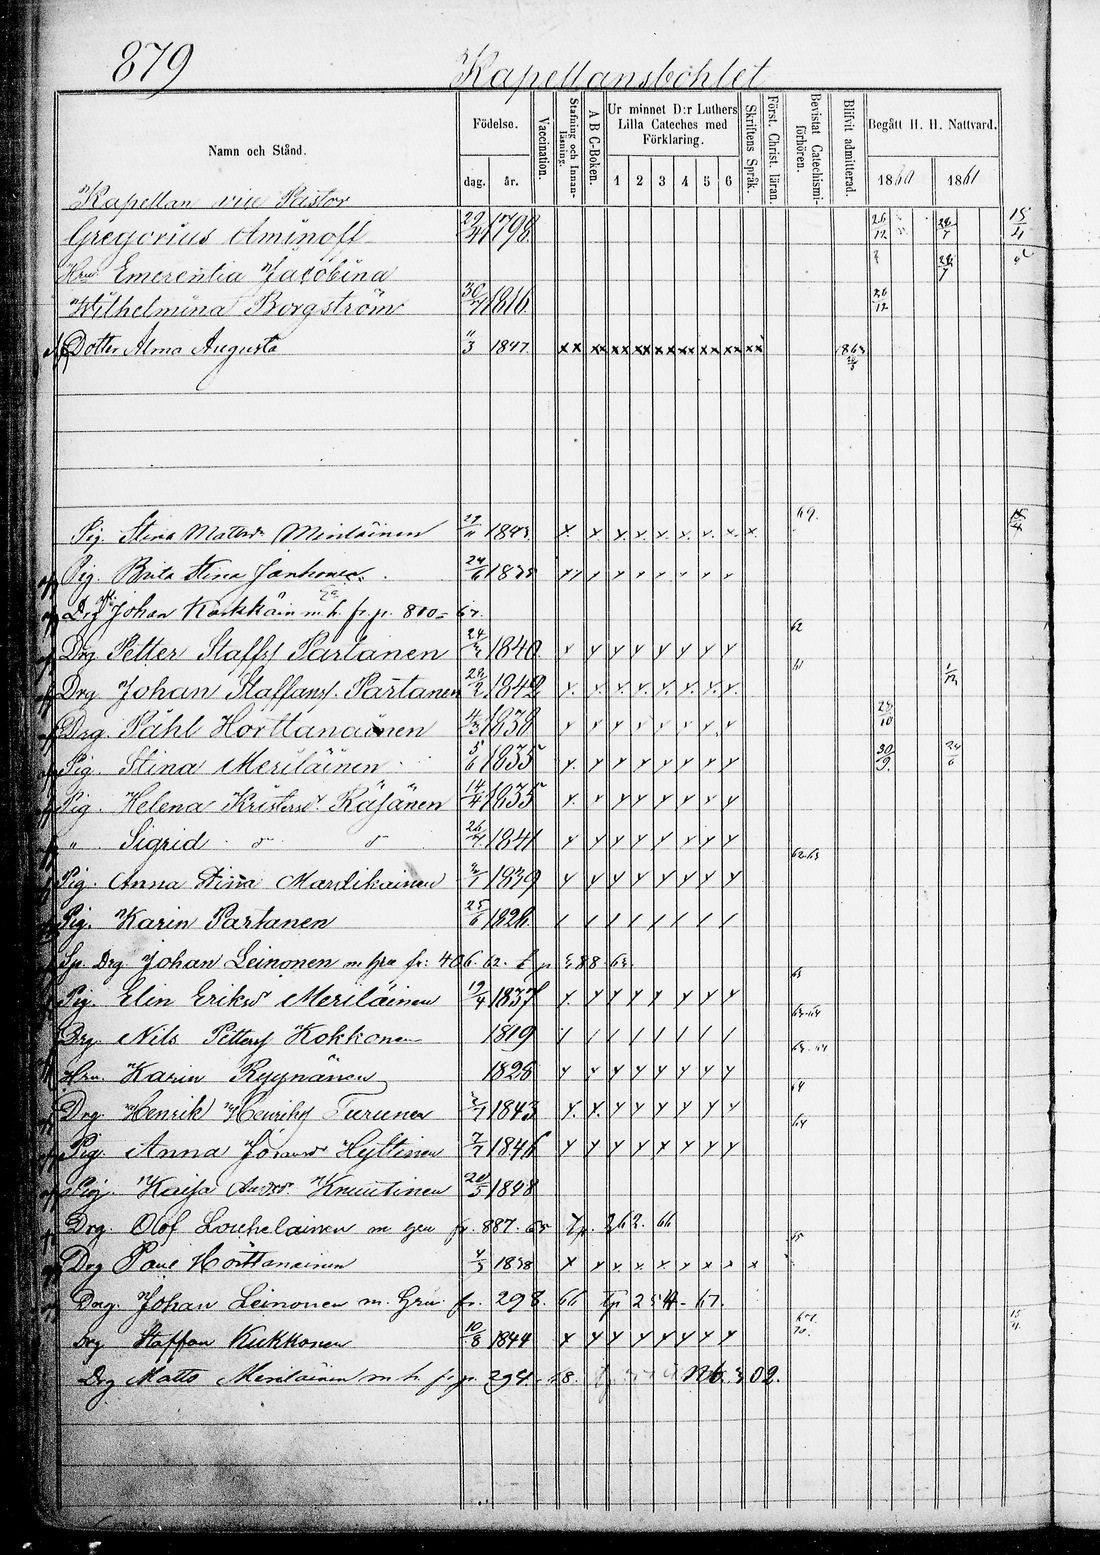 879 Kapellansbohlet
Namn och Stånd. Födelse. dag. år. Vaccination. Stafning och Innanläsning. A B C-Boken. Ur minnet D:r Luthers Lilla Cateches med Förklaring. 1 2 3 4 5 6 Skriftens Språk. Först. Christ. läran. Bevistat Catechismi-förhören. Blifvit admitterad. Begått H. H. Nattvard. 1860 1861
Kapellan vice Pastor
Gregorius Aminoff 29/4 1798 26/12 15/4
Hru. Emerentia Jacobina
Wilhelmina Borgström 30/7 1816 26/12
Dotter Alma Augusta "/3 1847 xx xx xx xx xx xx xx xx xx 1863
Pig. Stina Mattsdr Meriläinen 1843 x x x x x x x x x 69.
Pig. Brita Stina Jankonen 24/6 1838
Drg Johan Karkkäin m. h. fr. p. 800 = 65.
Drg Petter Staffs Partanen 1840 62
Drg Johan Staffanss. Partanen 1842 61 1/12
Drg. Påhl Horttanainen 1838 28/10
Pig. Stina Meriläinen 5/6 1835 30/9. 24/6
Pig. Helena Kristersdr Räisänen 14/4 1835
" Sigrid d:o d:o 1841
Pig. Anna Stina Martikainen 1839 62-63
Pig. Karin Partanen 25/6 1826
Sp. Drg. Johan Leinonen m hru fr: 406. 62. t p 388 63
Pig. Elin Eriksdr Meriläinen 19/4 1837 63
Drg. Nils Petterss Kokkonen 1819 63-64
Hru. Karin Ryynänen 1828 63-64
Drg. Henrik Henrikss Turunen 1843 64
Pig. Anna Hyttinen 7/7 1846 64
Pig. Kaisa Andsdr. Knuutinen 20/5 1848
Drg. Olof Louhelainen m gen fr. 887. 65 Tp. 262. 66
Drg Paul Horttanainen 4/3 1838 65
Drg. Johan Leinonen m. Hru fr. 298. 66 tp 254 - 67.
Drg Staffan Kukkonen 10/8 1844 15/4.
Drg Matts Meriläinen m h fr p. 294. 68. 302.